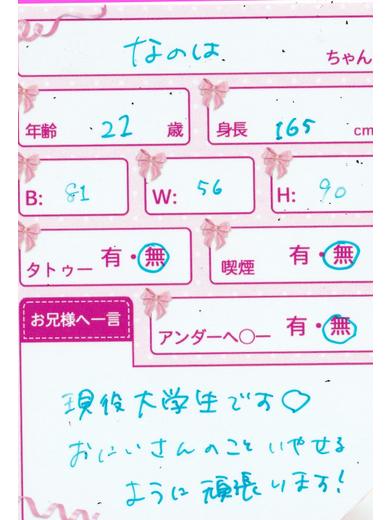 なのは ちゃん
年齢 22 歳 身長 165 cm
B: 81 W: 56 H: 90
タトゥー 有・無 喫煙 有・無
お兄様へ一言 アンダーヘ〇ー 有・無
現役大学生です♡
おにいさんのこといやせる
ように頑張ります!